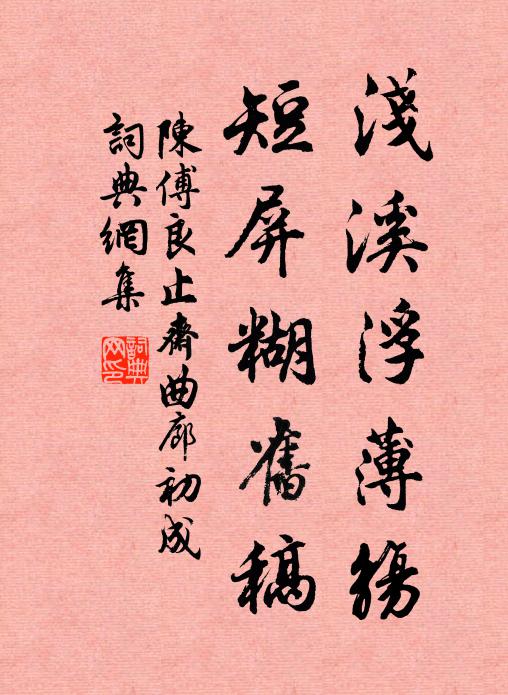 淺溪浮薄觴
短屏糊舊稿
陳傅良止齋曲廊初成
詞典網集
詞典網印